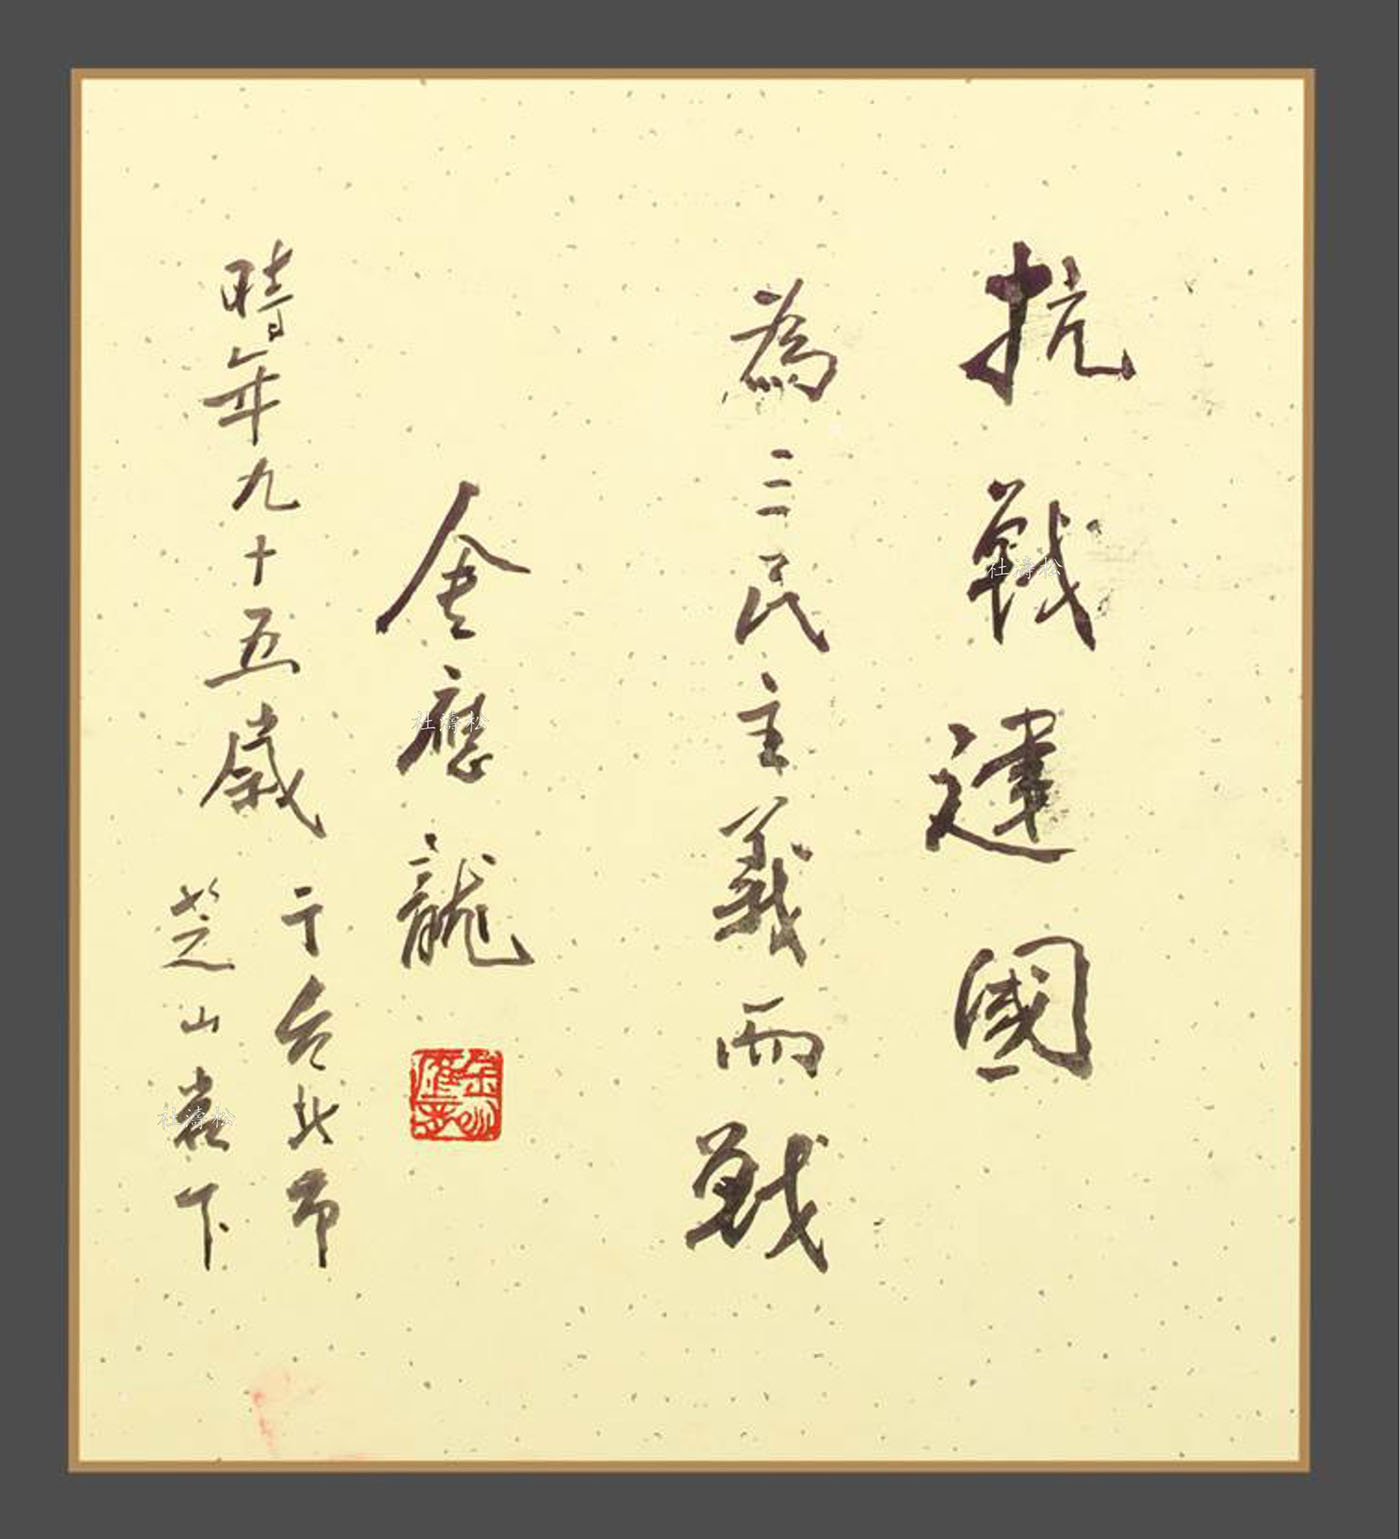 抗戰建國
為三民主義而戰
金應龍
時年九十五歲
于台北市
芝山岩下
杜濤松
杜濤松
杜濤松